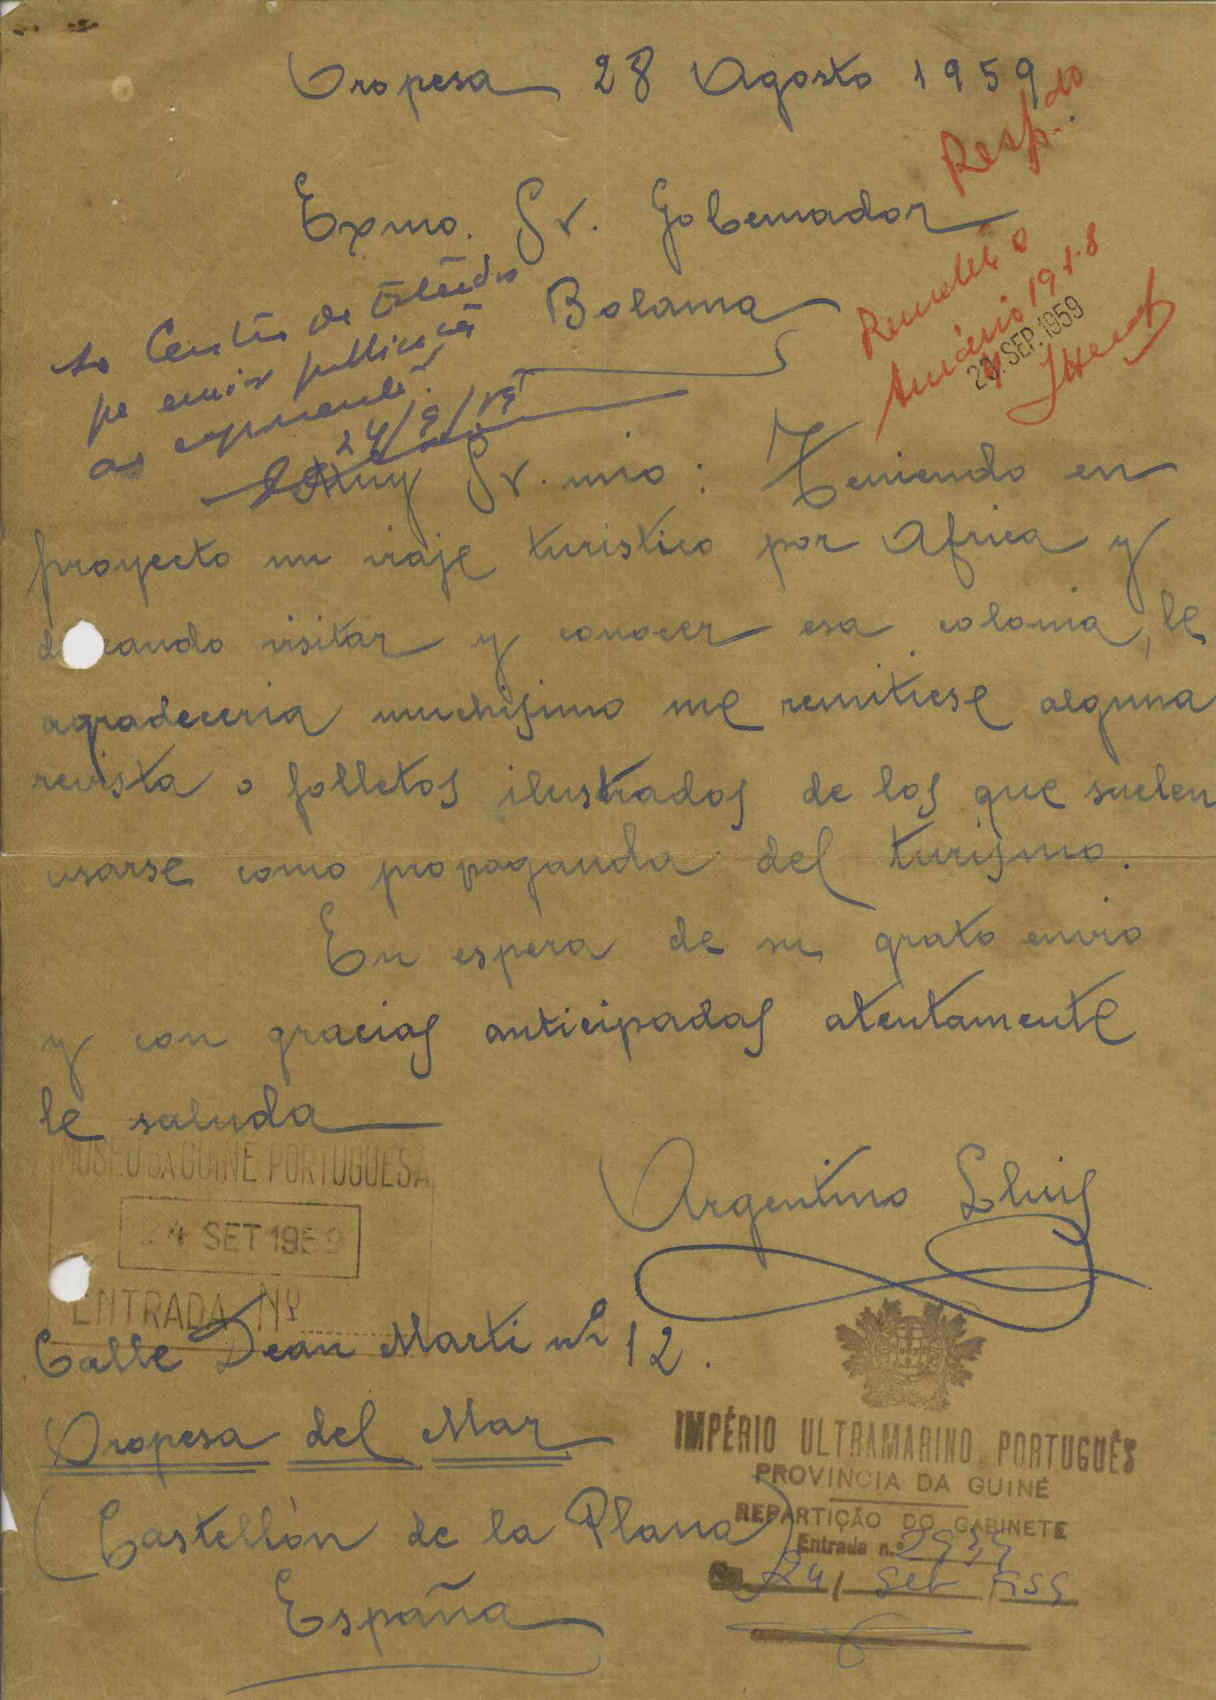 Oropesa 28 Agosto 1959
Resp.do
Exmo. Sr. Gobernador
Bolama
Ao Centro de Estudos
pa enviar publicações
24/9/59
Anuário 19
23. SEP. 1959
Muy Sr. mio: Teniendo en
proyecto un viaje turistico por Africa y
de eando visitar y conocer esa colonia, le
agradeceria muchisimo me remitiese alguna
revista o folletos ilustrados de los que suelen
usarse como propaganda del turismo.
En espera de su grato envio
y con gracias anticipadas atentamente
le saluda
MUSEU DA GUINÉ PORTUGUESA
24 SET 1959
ENTRADA Nº
Argentino Lluis
Calle Dean Marti nº 12.
Oropesa del Mar
(Castellón de la Plana)
España
IMPÉRIO ULTRAMARINO PORTUGUÊS
PROVINCIA DA GUINÉ
REPARTIÇÃO DO GABINETE
Entrada n.º
Em 24 / Set 1959